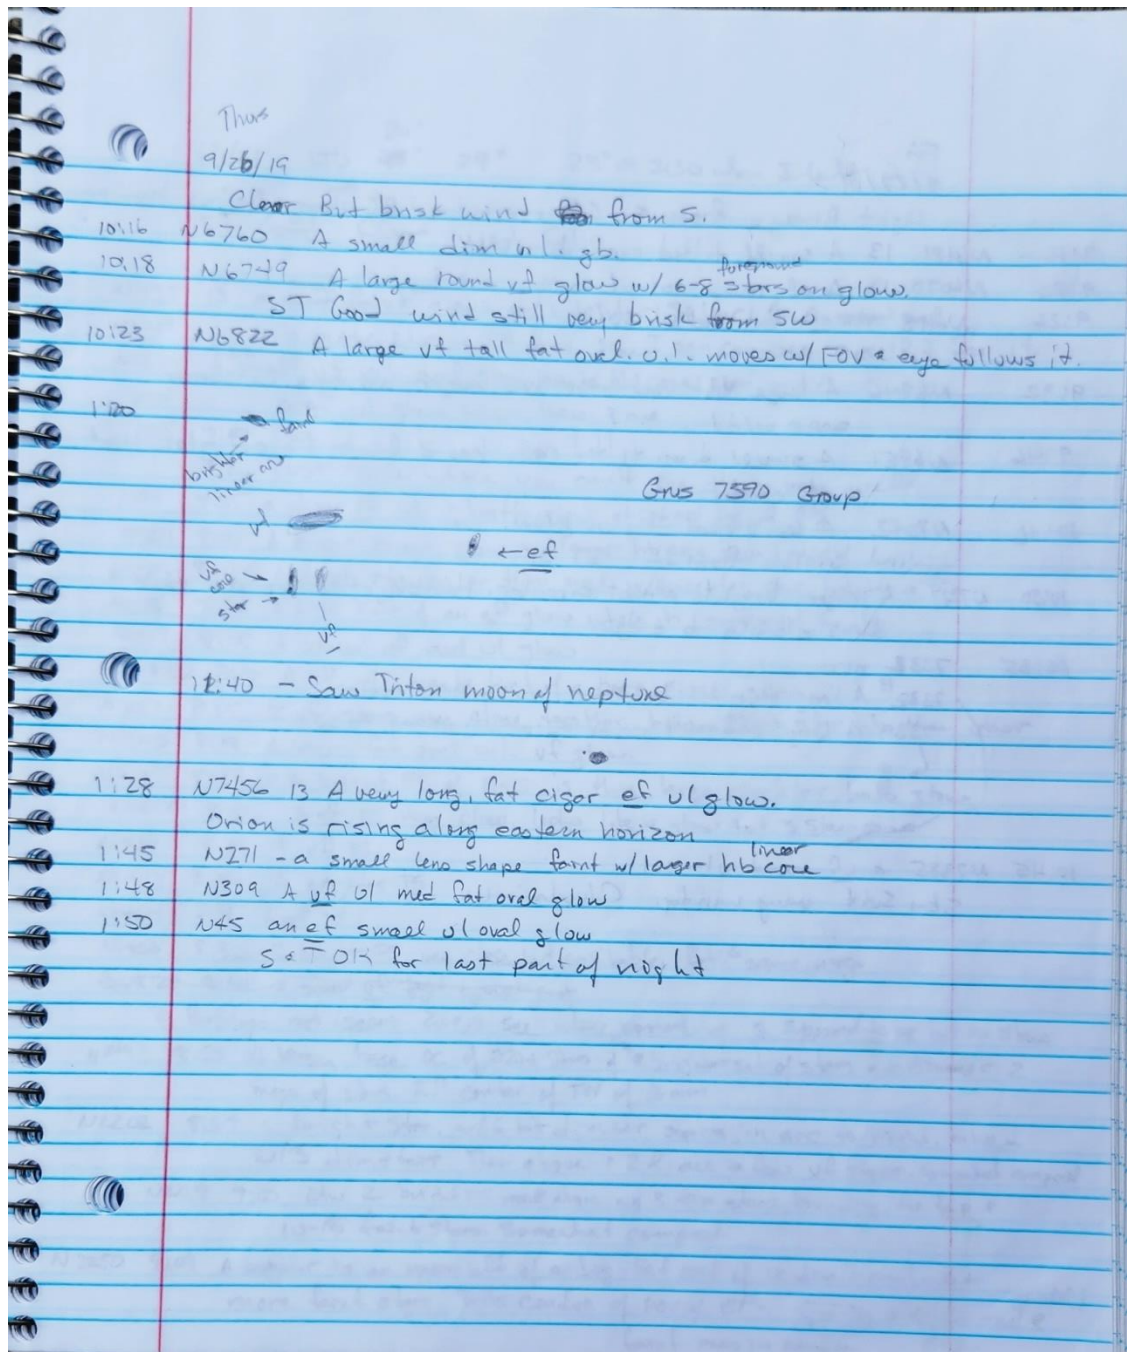 Thurs
9/26/19
Clear But brisk wind from S.
10:16 N6760 A small dim u l. gb.
foreground
10:18 N6749 A large round vf glow w/ 6-8 stars on glow.
ST Good wind still very brisk from SW
10:23 N6822 A large vf tall fat oval. u.l. moves w/ FOV & eye follows it.
1:20
faint
brighter
linear
Grus 7590 Group
vf
← ef
vf
core
star
vf
12:40 - Saw Triton moon of neptune
1:28 N7456 13 A very long, fat cigar ef ul glow.
Orion is rising along eastern horizon
linear
1:45 N271 - a small lens shape faint w/ larger hb core
1:48 N309 A vf ul med fat oval glow
1:50 N45 an ef small ul oval glow
S & T OK for last part of night